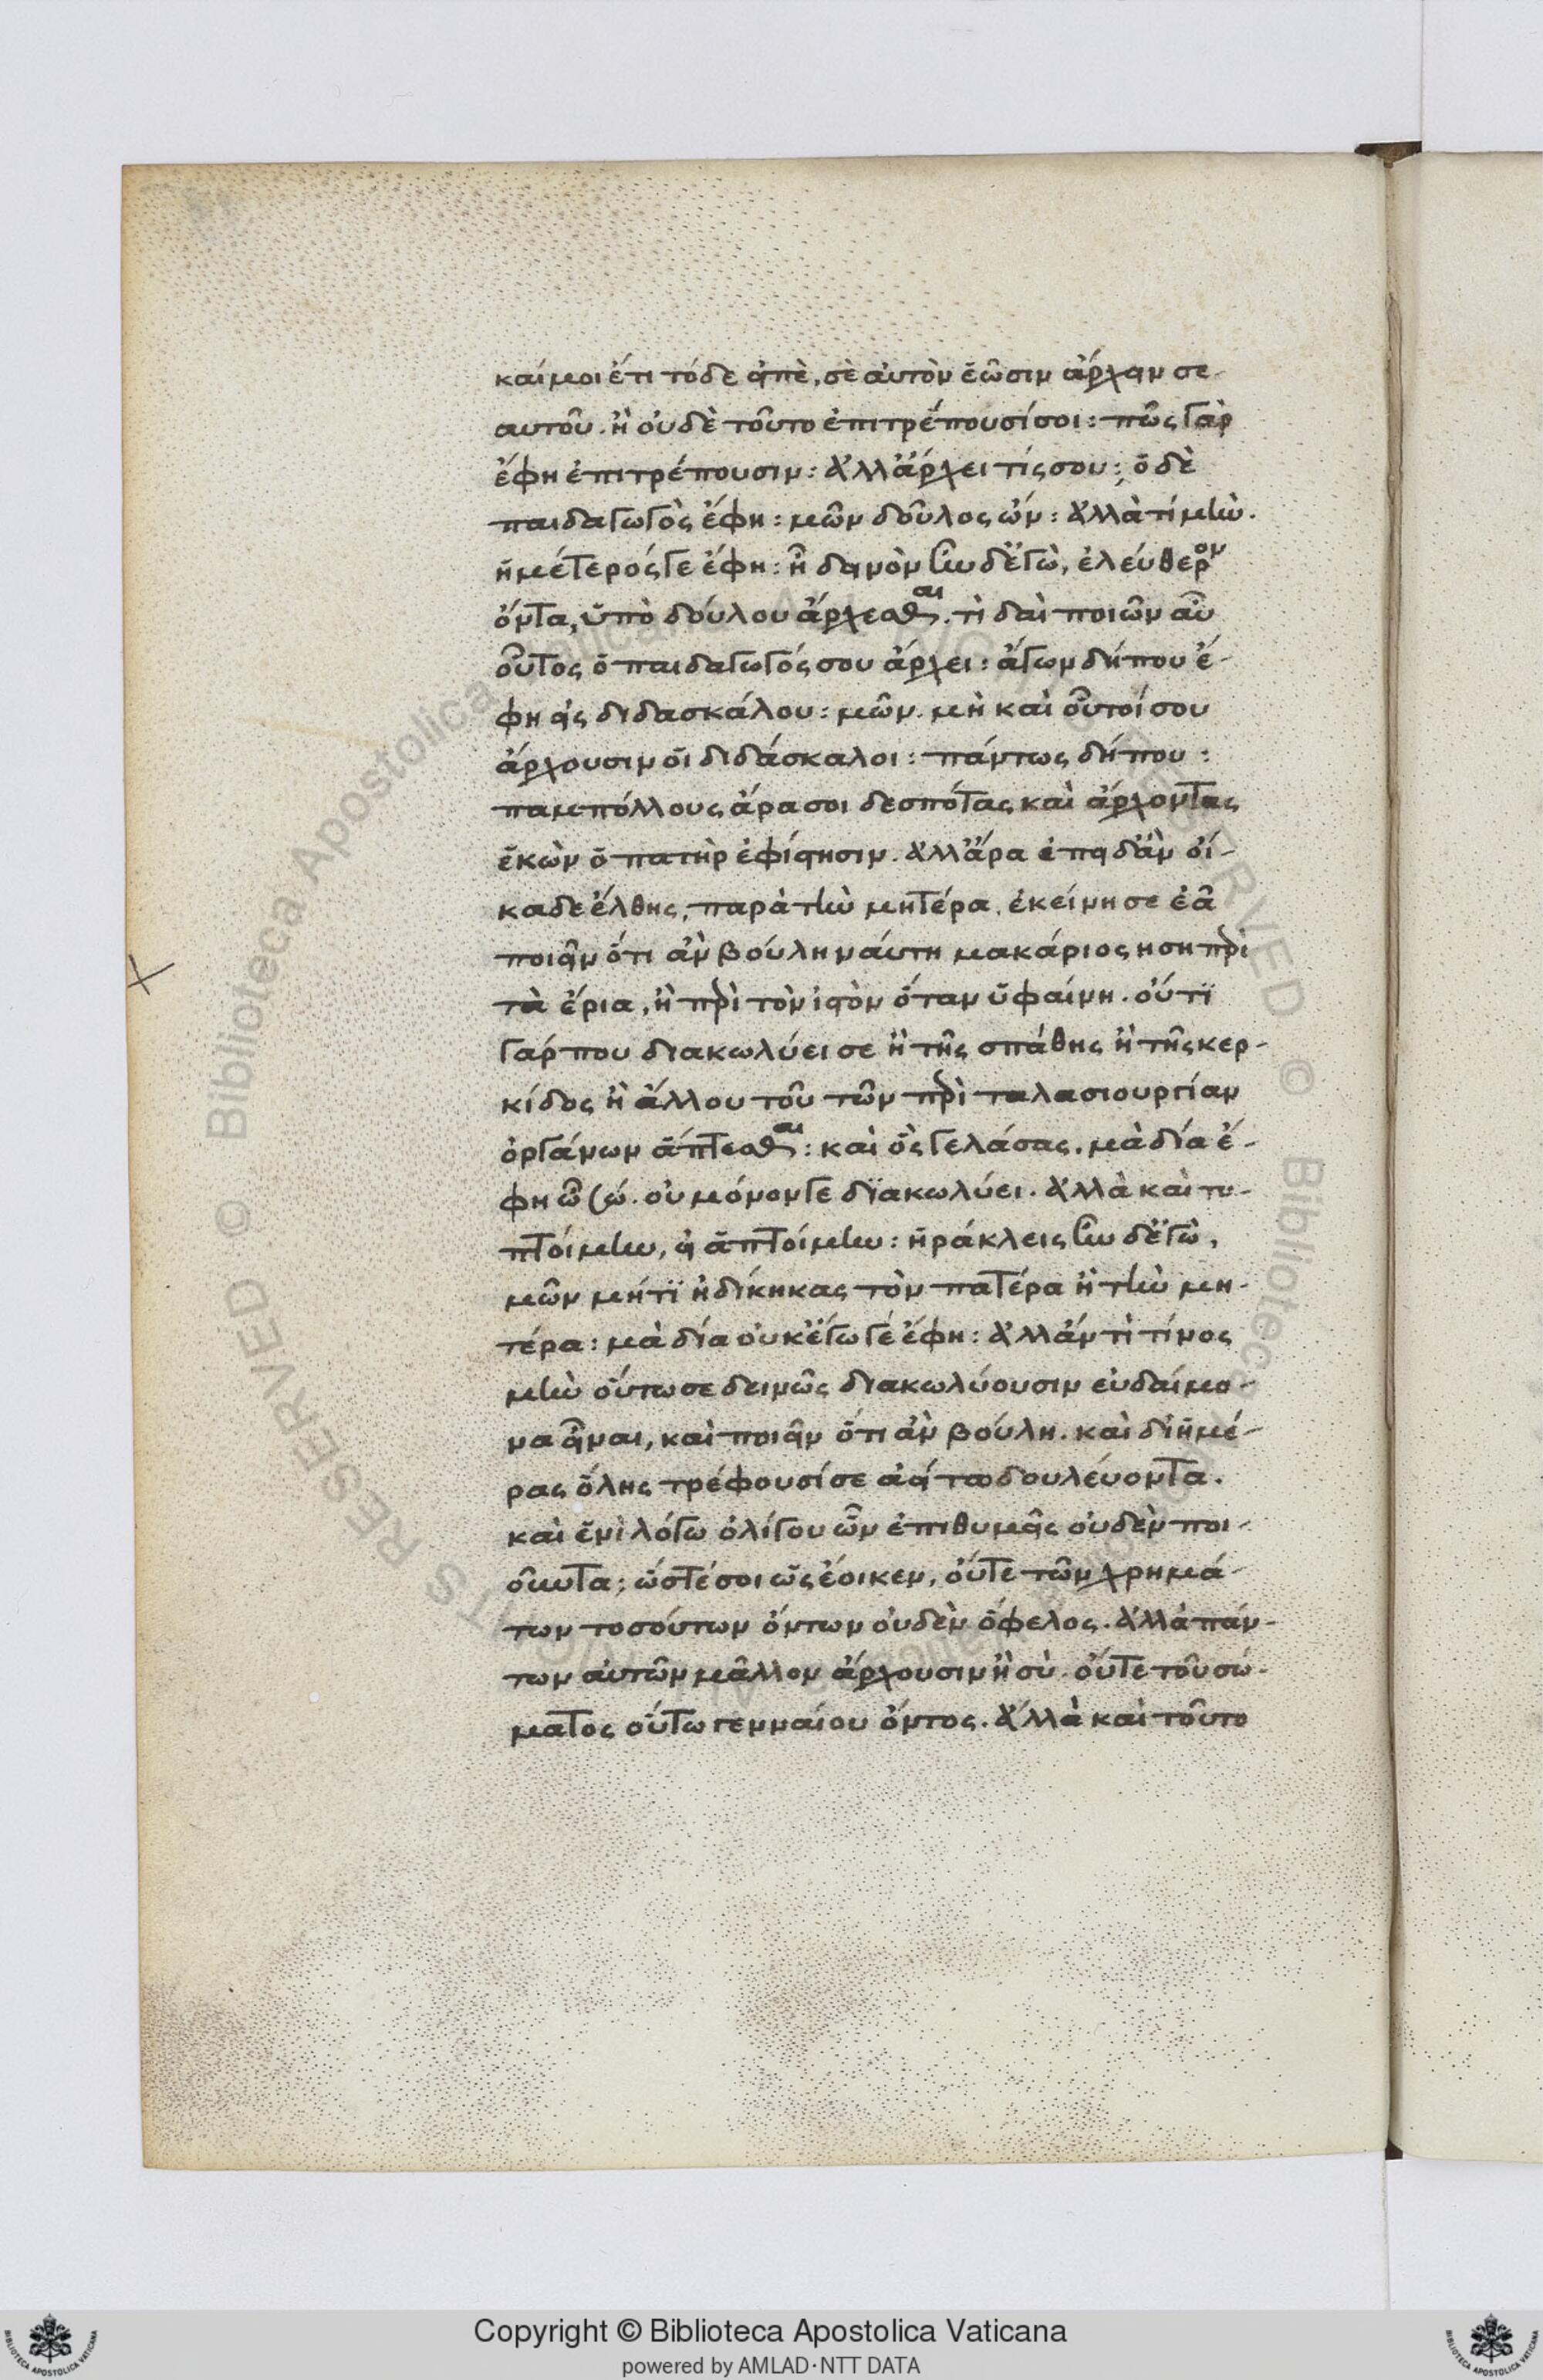 καίμοι ἔτι τόδε εἰπὲ, σὲ αὐτὸν ἐῶσιν ἄρχειν σε-
αυτοῦ. ἢ οὐδὲ τοῦτο ἐπιτρέπουσί σοι : πῶς γὰρ
ἔφη ἐπιτρέπουσιν : ἀλλ' ἄρχει τίς σου ; ὁ δὲ
παιδαγωγὸς ἔφη : μῶν δοῦλος ὤν : ἀλλὰ τί μὴν.
ἡμέτερός γε ἔφη : ἦ δεινὸν ἦν δ' ἐγὼ, ἐλεύθερον
ὄντα, ὑπὸ δούλου ἄρχεσθαι. τὶ δαὶ ποιῶν αὖ
οὗτος ὁ παιδαγωγός σου ἄρχει : ἄγων δήπου ἔ-
φη εἰς διδασκάλου : μῶν. μὴ καὶ οὗτοί σου
ἄρχουσιν οἱ διδάσκαλοι : πάντως δήπου :
παμπόλλους ἄρα σοι δεσπότας καὶ ἄρχοντας
ἑκὼν ὁ πατὴρ ἐφίστησιν. ἀλλ' ἆρα ἐπειδὰν οἴ-
καδε ἔλθης, παρὰ τὴν μητέρα, ἐκείνη σε ἐᾶ
ποιεῖν ὅτι ἂν βούλη ναύτη μακάριος ηση περὶ
τὰ ἔρια, ἢ περὶ τὸν ἱστὸν ὅταν ὑφαίνη. οὔτι
γάρ που διακωλύει σε ἢ τῆς σπάθης ἢ τῆς κερ-
κίδος ἢ ἄλλου τοῦ τῶν περὶ ταλασιουργίαν
ὀργάνων ἅπτεσθαι : καὶ ὃς γελάσας. μὰ δία ἔ-
φη ὦ σώ. οὐ μόνον γε διακωλύει. ἀλλὰ καὶ τυ-
πτοίμην, εἰ ἁπτοίμην : ἡράκλεις ἦν δ' ἐγὼ,
μῶν μήτι ἠδίκηκας τὸν πατέρα ἢ τὴν μη-
τέρα : μὰ δία οὐκ ἔγωγέ ἔφη : ἀλλ' ἀντὶ τίνος
μὴν οὕτω σε δεινῶς διακωλύουσιν εὐδαίμο-
να εἶναι, καὶ ποιεῖν ὅτι ἂν βούλη. καὶ δι' ἡμέ-
ρας ὅλης τρέφουσί σε ἀεί τω δουλεύοντα.
καὶ ἑνὶ λόγω ὀλίγου ὧν ἐπιθυμεῖς οὐδὲν ποι-
οῦντα ; ὥστέ σοι ὡς ἔοικεν, οὔτε τῶν χρημά-
των τοσούτων ὄντων οὐδὲν ὄφελος. ἀλλὰ πάν-
των αὐτῶν μᾶλλον ἄρχουσιν ἢ σὺ. οὔτε τοῦ σώ-
ματος οὕτω γενναίου ὄντος. ἀλλὰ καὶ τοῦτο
Copyright © Biblioteca Apostolica Vaticana
powered by AMLAD·NTT DATA